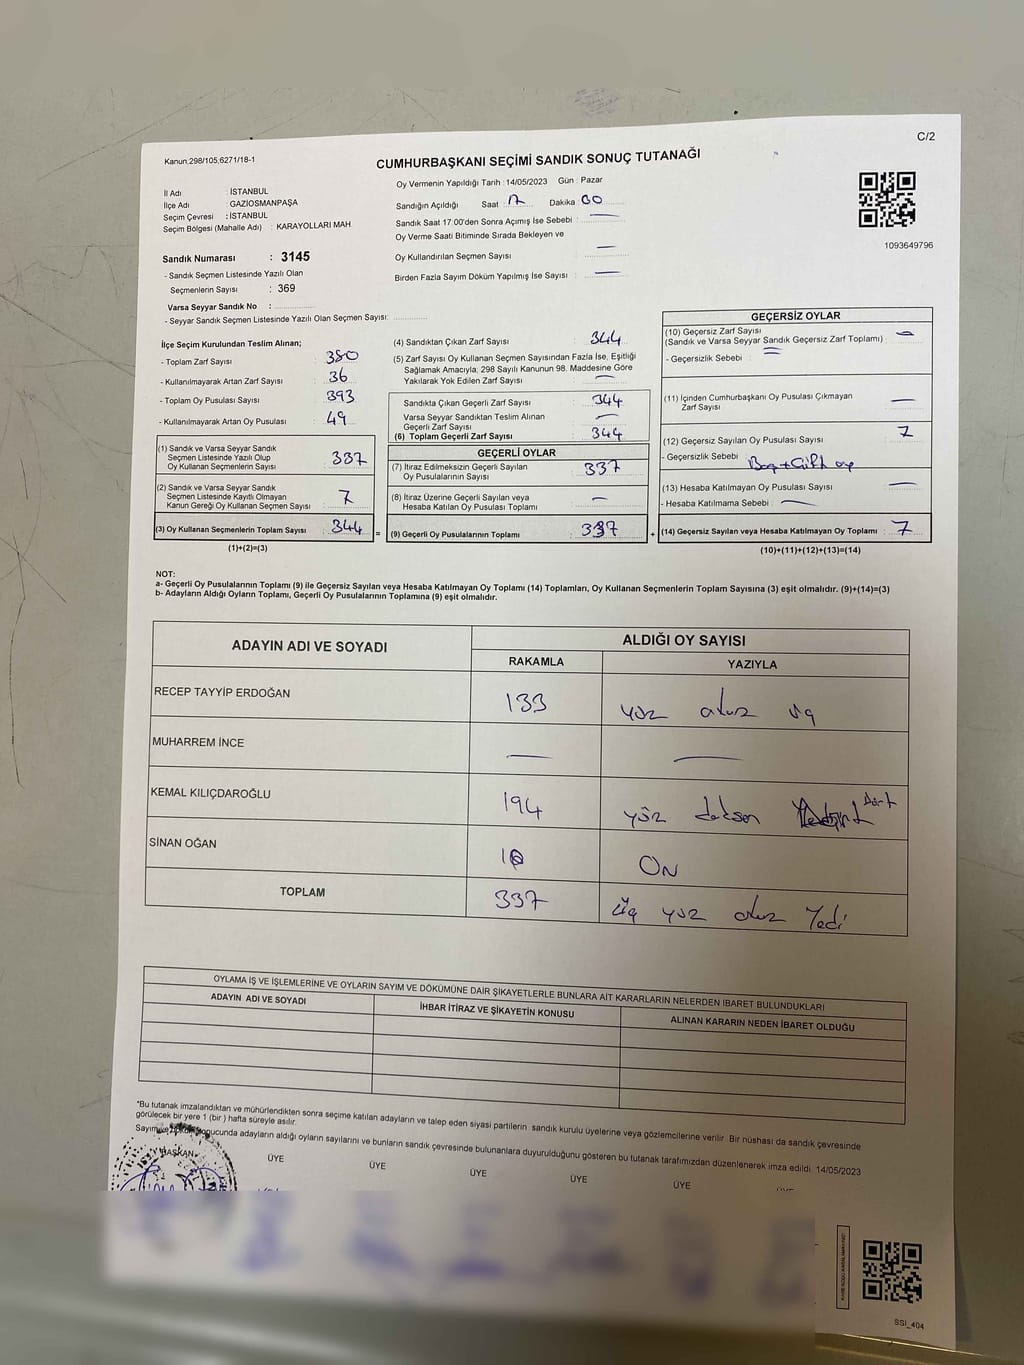 C/2
Kanun,298/105,6271/18-1
CUMHURBAŞKANI SEÇİMİ SANDIK SONUÇ TUTANAĞI
İl Adı : İSTANBUL
İlçe Adı : GAZİOSMANPAŞA
Seçim Çevresi : İSTANBUL
Seçim Bölgesi (Mahalle Adı) : KARAYOLLARI MAH.
Sandık Numarası : 3145
- Sandık Seçmen Listesinde Yazılı Olan
Seçmenlerin Sayısı : 369
Varsa Seyyar Sandık No :
- Seyyar Sandık Seçmen Listesinde Yazılı Olan Seçmen Sayısı:
Oy Vermenin Yapıldığı Tarih : 14/05/2023 Gün : Pazar
Sandığın Açıldığı Saat : 17 Dakika : 00
Sandık Saat 17:00'den Sonra Açımış İse Sebebi : —
Oy Verme Saati Bitiminde Sırada Bekleyen ve
Oy Kullandırılan Seçmen Sayısı : —
Birden Fazla Sayım Döküm Yapılmış İse Sayısı : —
1093649796
İlçe Seçim Kurulundan Teslim Alınan;
- Toplam Zarf Sayısı : 380
- Kullanılmayarak Artan Zarf Sayısı : 36
- Toplam Oy Pusulası Sayısı : 393
- Kullanılmayarak Artan Oy Pusulası : 49
(1) Sandık ve Varsa Seyyar Sandık
Seçmen Listesinde Yazılı Olup
Oy Kullanan Seçmenlerin Sayısı : 337
(2) Sandık ve Varsa Seyyar Sandık
Seçmen Listesinde Kayıtlı Olmayan
Kanun Gereği Oy Kullanan Seçmen Sayısı : 7
(3) Oy Kullanan Seçmenlerin Toplam Sayısı : 344
(1)+(2)=(3)
(4) Sandıktan Çıkan Zarf Sayısı : 344
(5) Zarf Sayısı Oy Kullanan Seçmen Sayısından Fazla İse, Eşitliği
Sağlamak Amacıyla, 298 Sayılı Kanunun 98. Maddesine Göre
Yakılarak Yok Edilen Zarf Sayısı : —
Sandıkta Çıkan Geçerli Zarf Sayısı : 344
Varsa Seyyar Sandıktan Teslim Alınan
Geçerli Zarf Sayısı : —
(6) Toplam Geçerli Zarf Sayısı : 344
GEÇERLİ OYLAR
(7) İtiraz Edilmeksizin Geçerli Sayılan
Oy Pusulalarının Sayısı : 337
(8) İtiraz Üzerine Geçerli Sayılan veya
Hesaba Katılan Oy Pusulası Toplamı : —
= (9) Geçerli Oy Pusulalarının Toplamı : 337
GEÇERSİZ OYLAR
(10) Geçersiz Zarf Sayısı
(Sandık ve Varsa Seyyar Sandık Geçersiz Zarf Toplamı) : —
- Geçersizlik Sebebi : —
(11) İçinden Cumhurbaşkanı Oy Pusulası Çıkmayan
Zarf Sayısı : —
(12) Geçersiz Sayılan Oy Pusulası Sayısı : 7
- Geçersizlik Sebebi : Boş + Çift oy
(13) Hesaba Katılmayan Oy Pusulası Sayısı : —
- Hesaba Katılmama Sebebi : —
+ (14) Geçersiz Sayılan veya Hesaba Katılmayan Oy Toplamı : 7
(10)+(11)+(12)+(13)=(14)
NOT:
a- Geçerli Oy Pusulalarının Toplamı (9) ile Geçersiz Sayılan veya Hesaba Katılmayan Oy Toplamı (14) Toplamları, Oy Kullanan Seçmenlerin Toplam Sayısına (3) eşit olmalıdır. (9)+(14)=(3)
b- Adayların Aldığı Oyların Toplamı, Geçerli Oy Pusulalarının Toplamına (9) eşit olmalıdır.
ADAYIN ADI VE SOYADI ALDIĞI OY SAYISI
RAKAMLA YAZIYLA
RECEP TAYYİP ERDOĞAN 133 yüz otuz üç
MUHARREM İNCE — —
KEMAL KILIÇDAROĞLU 194 yüz doksan Dört
SİNAN OĞAN 10 ON
TOPLAM 337 üç yüz otuz Yedi
OYLAMA İŞ VE İŞLEMLERİNE VE OYLARIN SAYIM VE DÖKÜMÜNE DAİR ŞİKAYETLERLE BUNLARA AİT KARARLARIN NELERDEN İBARET BULUNDUKLARI
ADAYIN ADI VE SOYADI İHBAR İTİRAZ VE ŞİKAYETİN KONUSU ALINAN KARARIN NEDEN İBARET OLDUĞU
*Bu tutanak imzalandıktan ve mühürlendikten sonra seçime katılan adayların ve talep eden siyasi partilerin sandık kurulu üyelerine veya gözlemcilerine verilir. Bir nüshası da sandık çevresinde
görülecek bir yere 1 (bir ) hafta süreyle asılır.
Sayım ve sonucunda adayların aldığı oyların sayılarını ve bunların sandık çevresinde bulunanlara duyurulduğunu gösteren bu tutanak tarafımızdan düzenlenerek imza edildi. 14/05/2023
BAŞKAN ÜYE ÜYE ÜYE ÜYE ÜYE
SSI_404